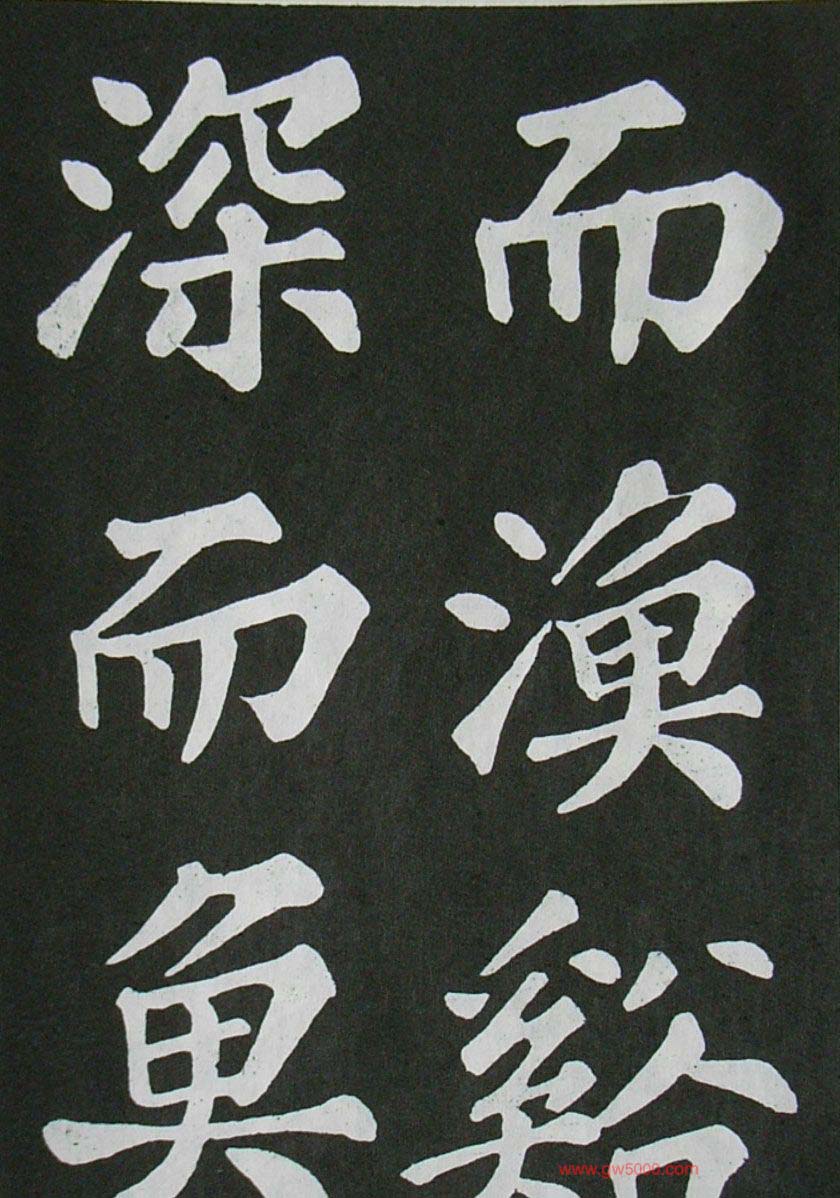 而渔谿
深而鱼
www.gw5000.com